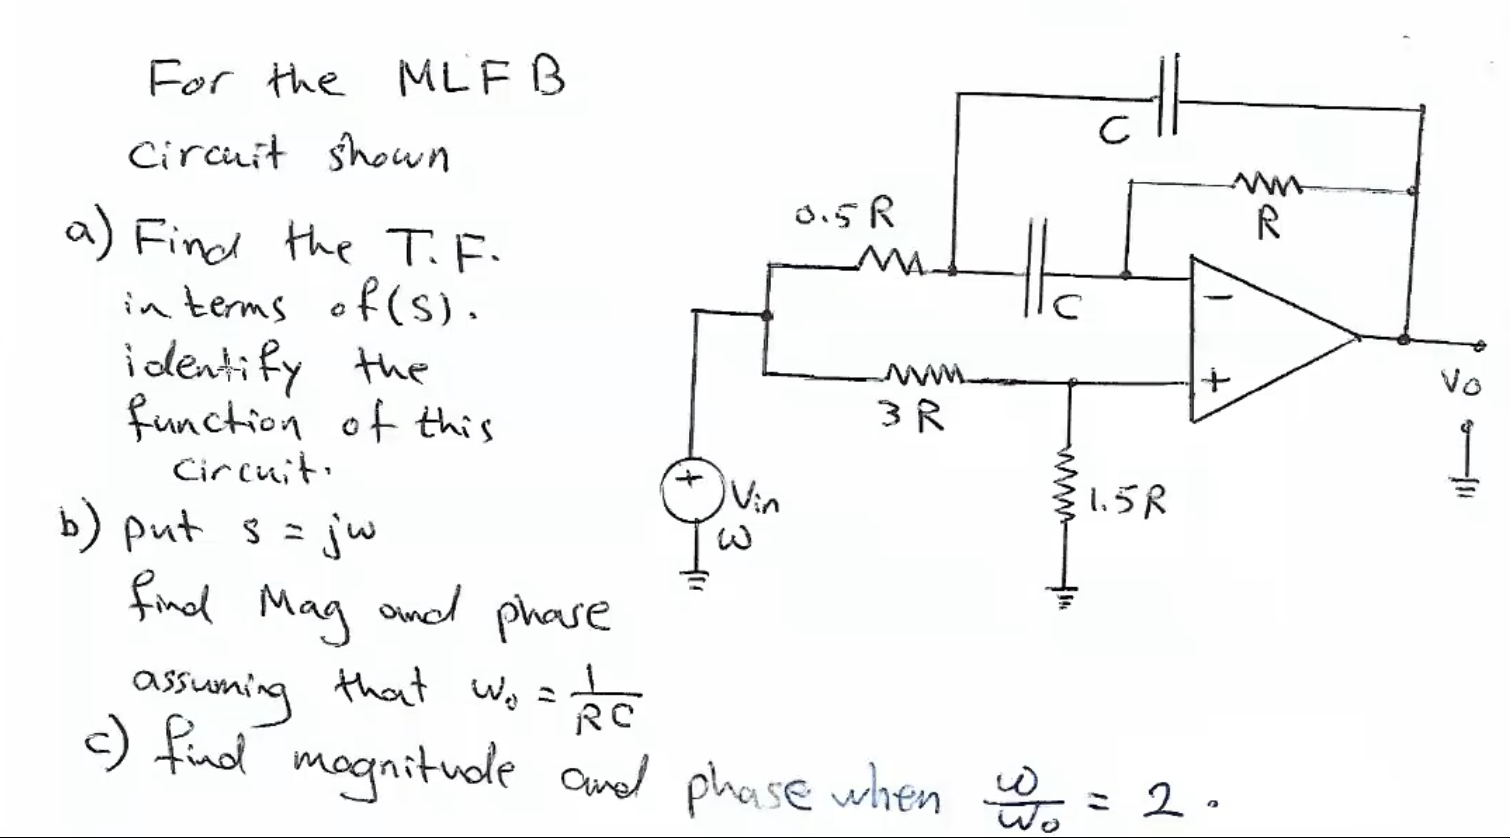 For the MLFB
circuit shown
a) Find the T.F.
in terms of (s).
identify the
function of this
circuit.
b) put s = jw
find Mag and phase
assuming that w₀ = 1/RC
c) find magnitude and phase when w/w₀ = 2.
C
R
0.5R
C
−
+
Vo
3R
+
Vin
ω
1.5R